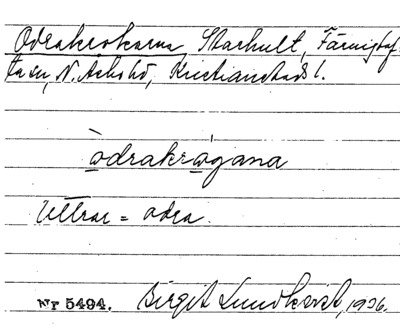 Odrakrokarna, Starhult, Färingtof-
ta sn, N. Åsbo hd, Kristianstads l.
òdrakrågana
Uttrar = odra.
Nr 5494. Birgit Lundkvist, 1936.